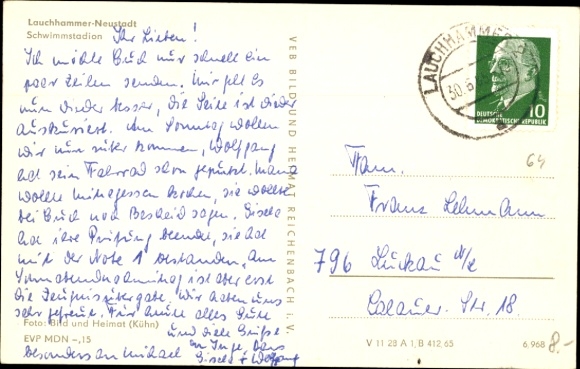 Lauchhammer-Neustadt
Schwimmstadion
Ihr Lieben!
Ich möchte Euch nur schnell ein
paar Zeilen senden. Mir geht es
nun wieder besser, die Seite ist wieder
auskuriert. Am Sonntag wollen
wir nun rüber kommen, Wolfgang
hat sein Fahrrad schon geputzt. Mama
wollte mitagessen kochen, sie wollte
bei Euch noch Bescheid sagen. Gisela
hat ihre Prüfung beendet, sie hat
mit der Note 1 bestanden. Am
Sonnabendnachmittag ist aber erst
die Zeugnisübergabe. Wir haben uns
sehr gefreut. Für heute alles Gute
und viele Grüße
besonders an Michael
Gisela + Wolfgang
Foto: Bild und Heimat (Kühn)
EVP MDN -,15
VEB BILD UND HEIMAT REICHENBACH i. V.
V 11 28 A 1, B 412,65
6,968
8.-
LAUCHHAMMER
30.6
10
DEUTSCHE
DEMOKRATISCHE REPUBLIK
64
Fam.
Franz Lehmann
796 Luckau N/L
Calauer Str. 18.